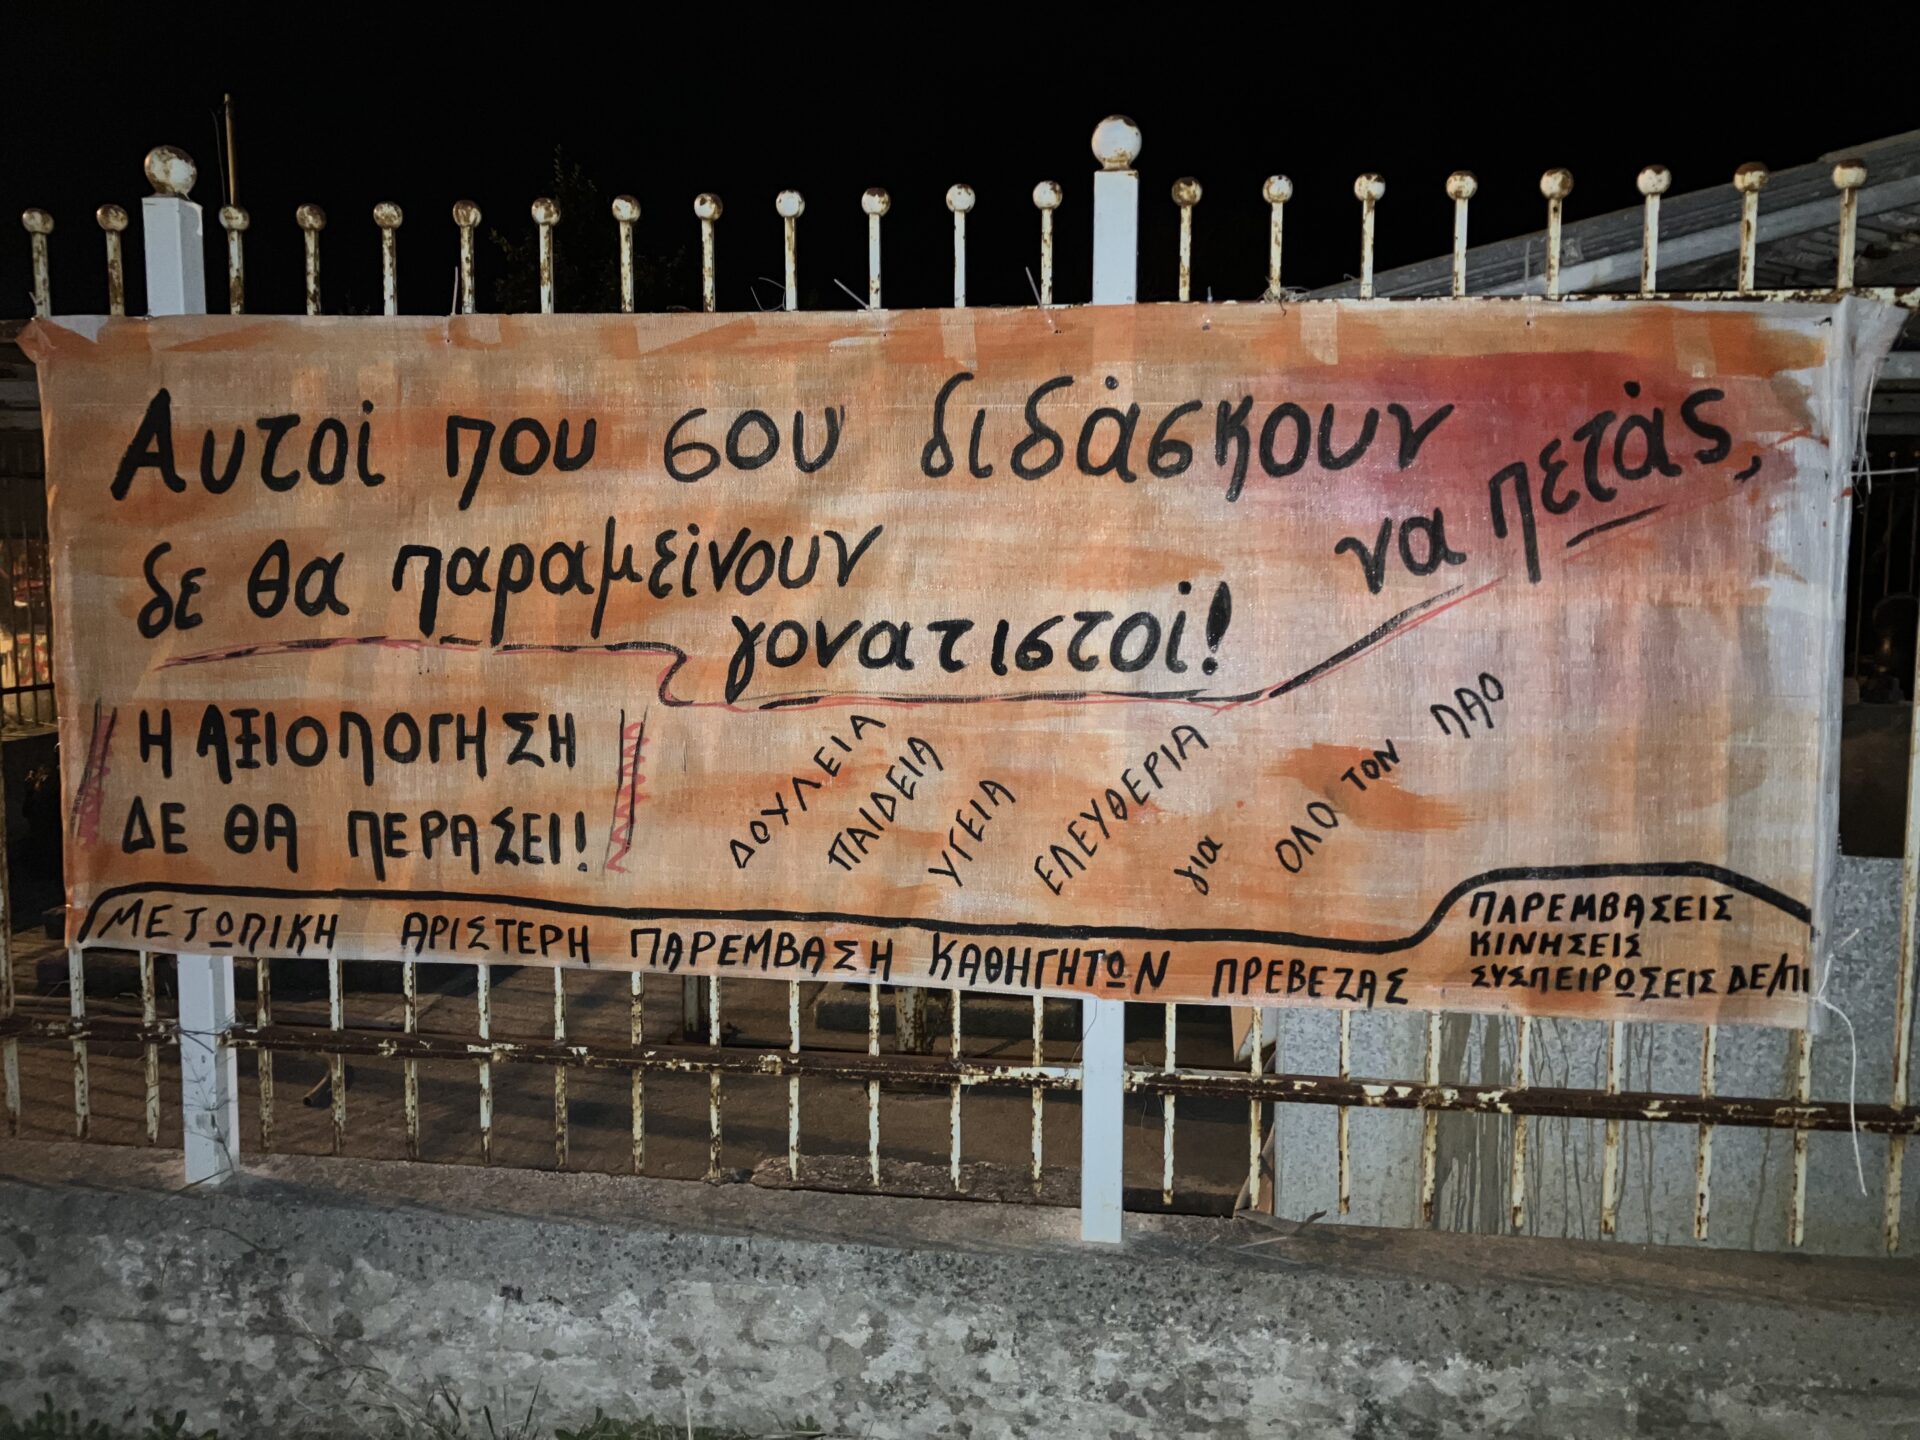 Αυτοί που σου διδάσκουν να πετάς,
δε θα παραμείνουν
γονατιστοί!
Η ΑΞΙΟΛΟΓΗΣΗ
ΔΕ ΘΑ ΠΕΡΑΣΕΙ!
ΔΟΥΛΕΙΑ
ΠΑΙΔΕΙΑ
ΥΓΕΙΑ
ΕΛΕΥΘΕΡΙΑ
για
ΟΛΟ ΤΟΝ ΛΑΟ
ΜΕΤΩΠΙΚΗ ΑΡΙΣΤΕΡΗ ΠΑΡΕΜΒΑΣΗ ΚΑΘΗΓΗΤΩΝ ΠΡΕΒΕΖΑΣ
ΠΑΡΕΜΒΑΣΕΙΣ
ΚΙΝΗΣΕΙΣ
ΣΥΣΠΕΙΡΩΣΕΙΣ ΔΕ/ΠΙ